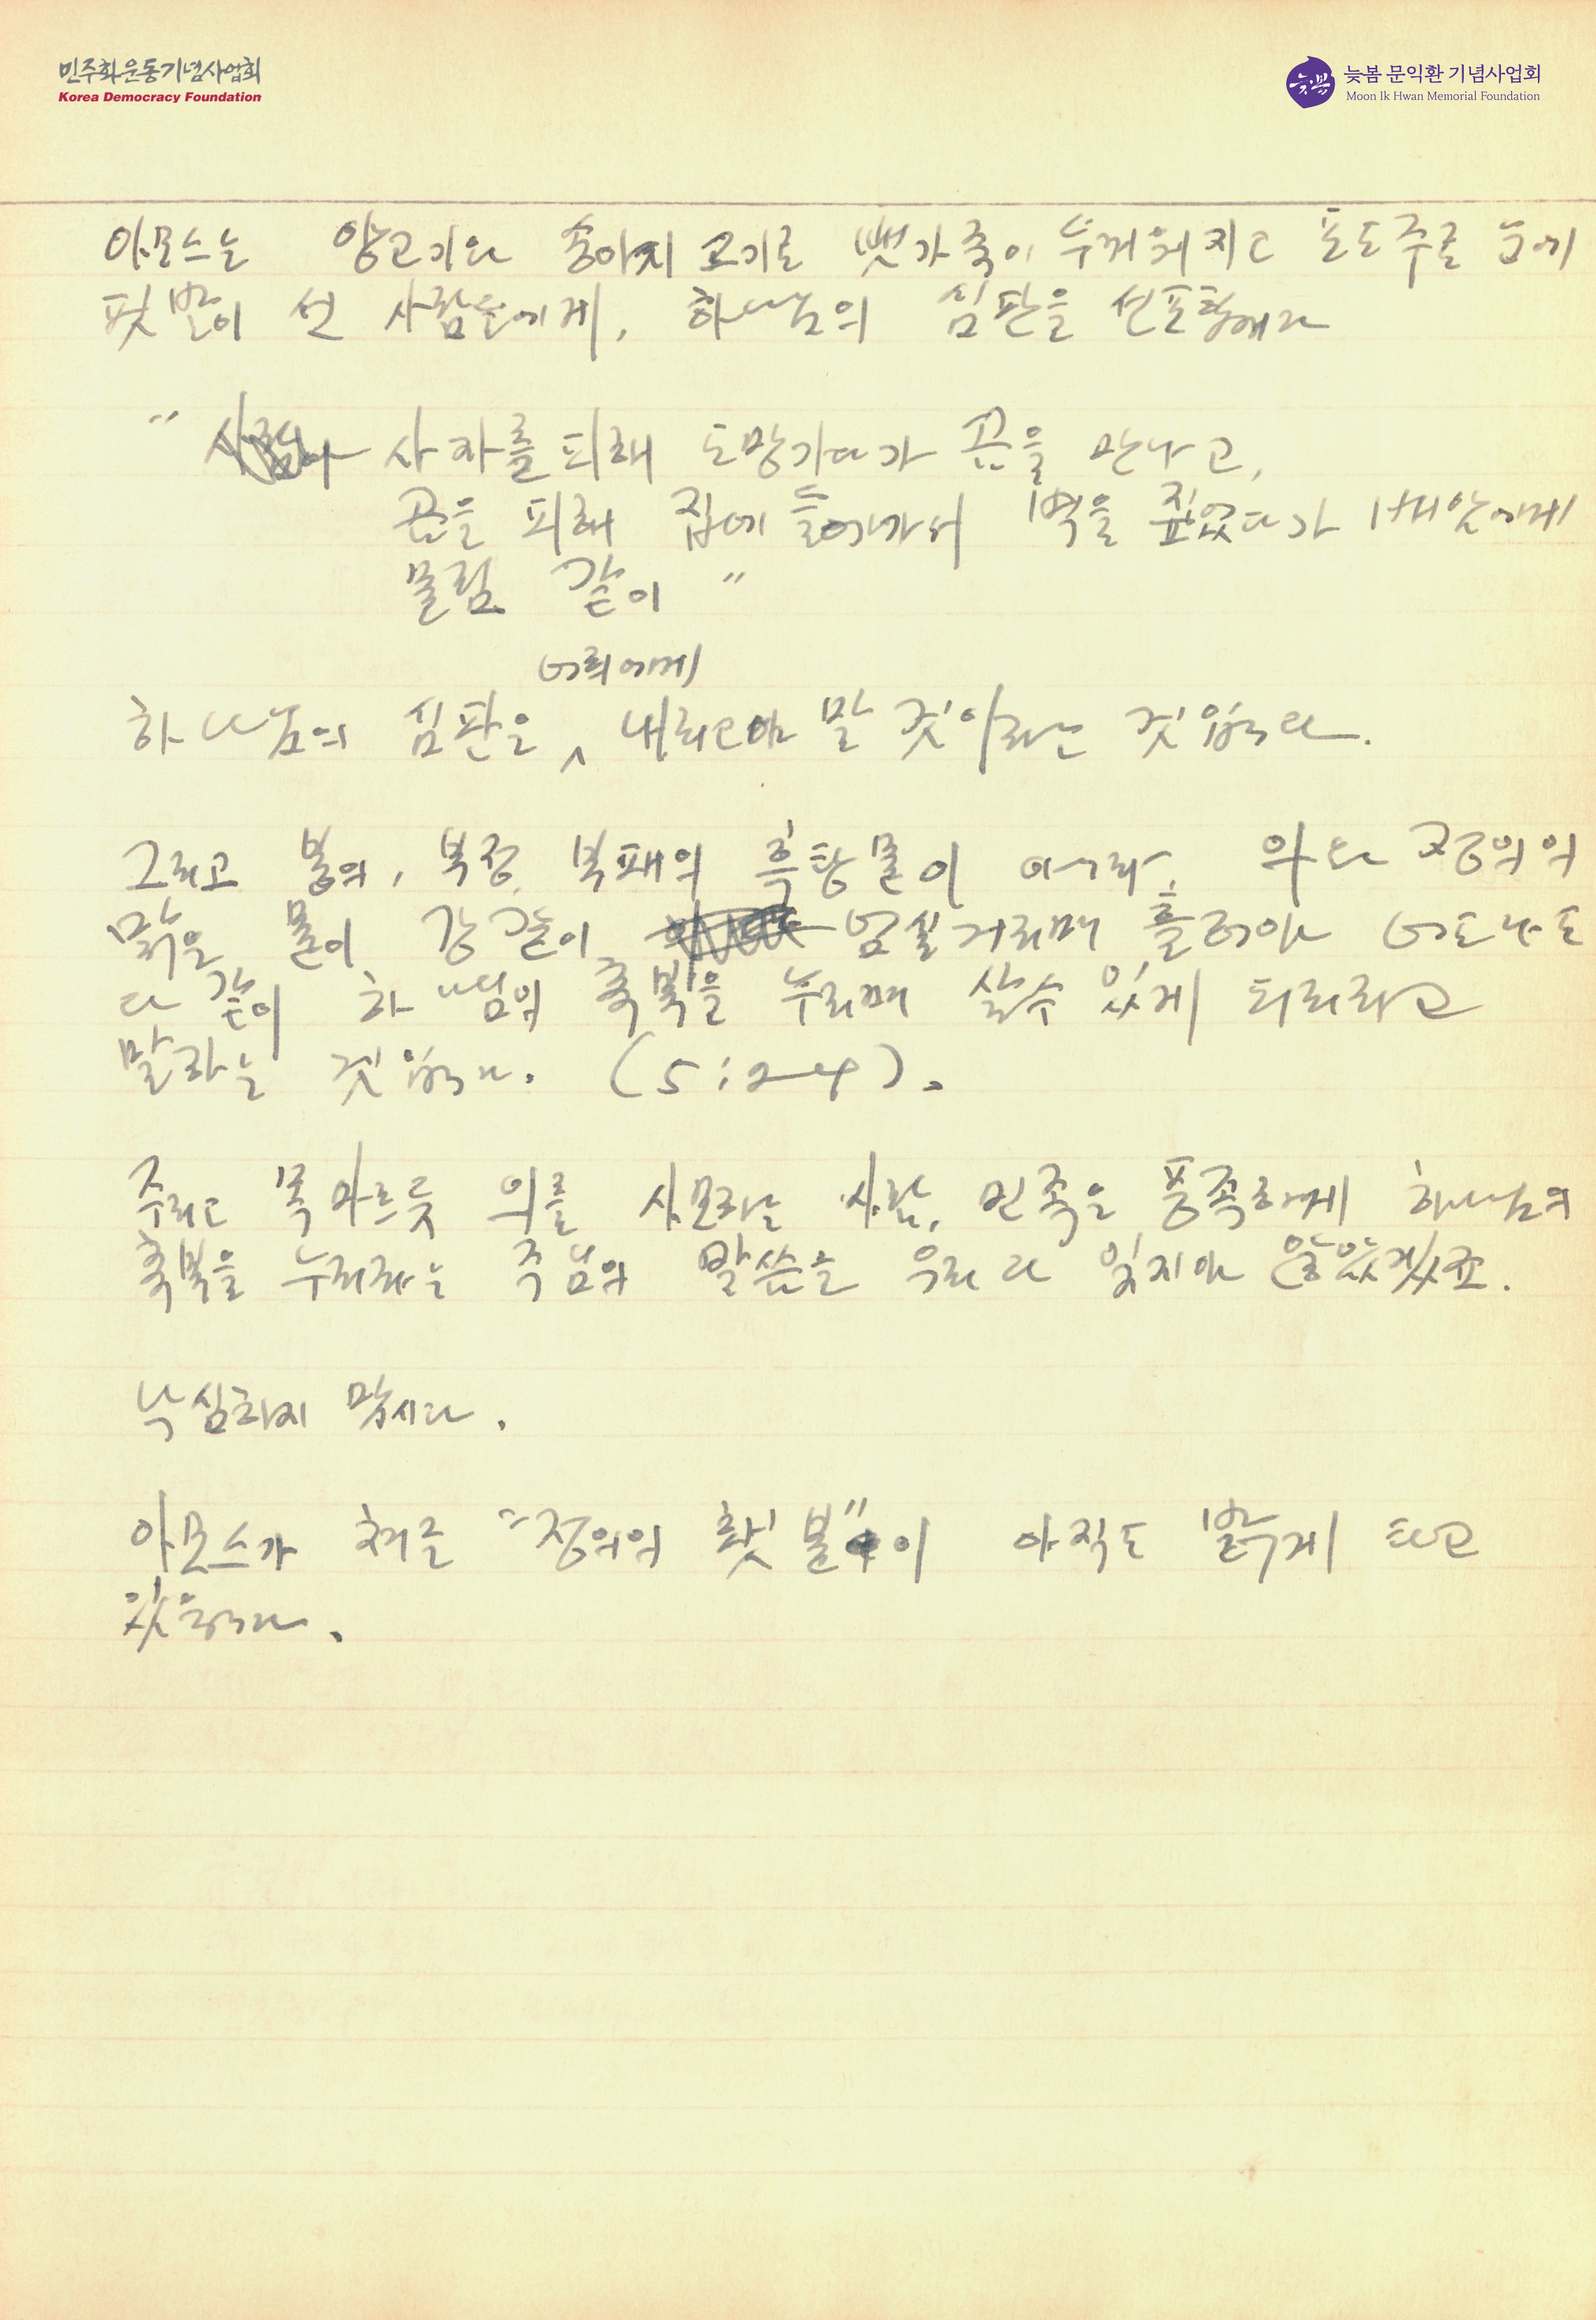 민주화운동기념사업회
Korea Democracy Foundation
늦봄 문익환 기념사업회
Moon Ik Hwan Memorial Foundation
아모스는 양고기와 송아지 고기로 뱃가죽이 두꺼워지고 포도주로 눈에
핏발이 선 사람들에게, 하나님의 심판을 선포합니다
" 사자를 피해 도망가다가 곰을 만나고,
곰을 피해 집에 들어가서 벽을 짚었다가 배암에게
물림 같이 "
너희에게
하나님의 심판은 내리고야 말 것이라는 것입니다.
그리고 불의, 부정, 부패의 흙탕물이 아니라, 의와 정의의
맑은 물이 강같이 넘실거리며 흘러야 너도 나도
다 같이 하나님의 축복을 누리며 살 수 있게 되리라고
말하는 것입니다. (5:24).
주리고 목마르듯 의를 사모하는 사람, 민족은 풍족하게 하나님의
축복을 누리리라는 주님의 말씀을 우리 다 잊지야 않았겠죠.
낙심하지 맙시다.
아모스가 쳐든 "정의의 횃불"이 아직도 밝게 타고
있습니다.